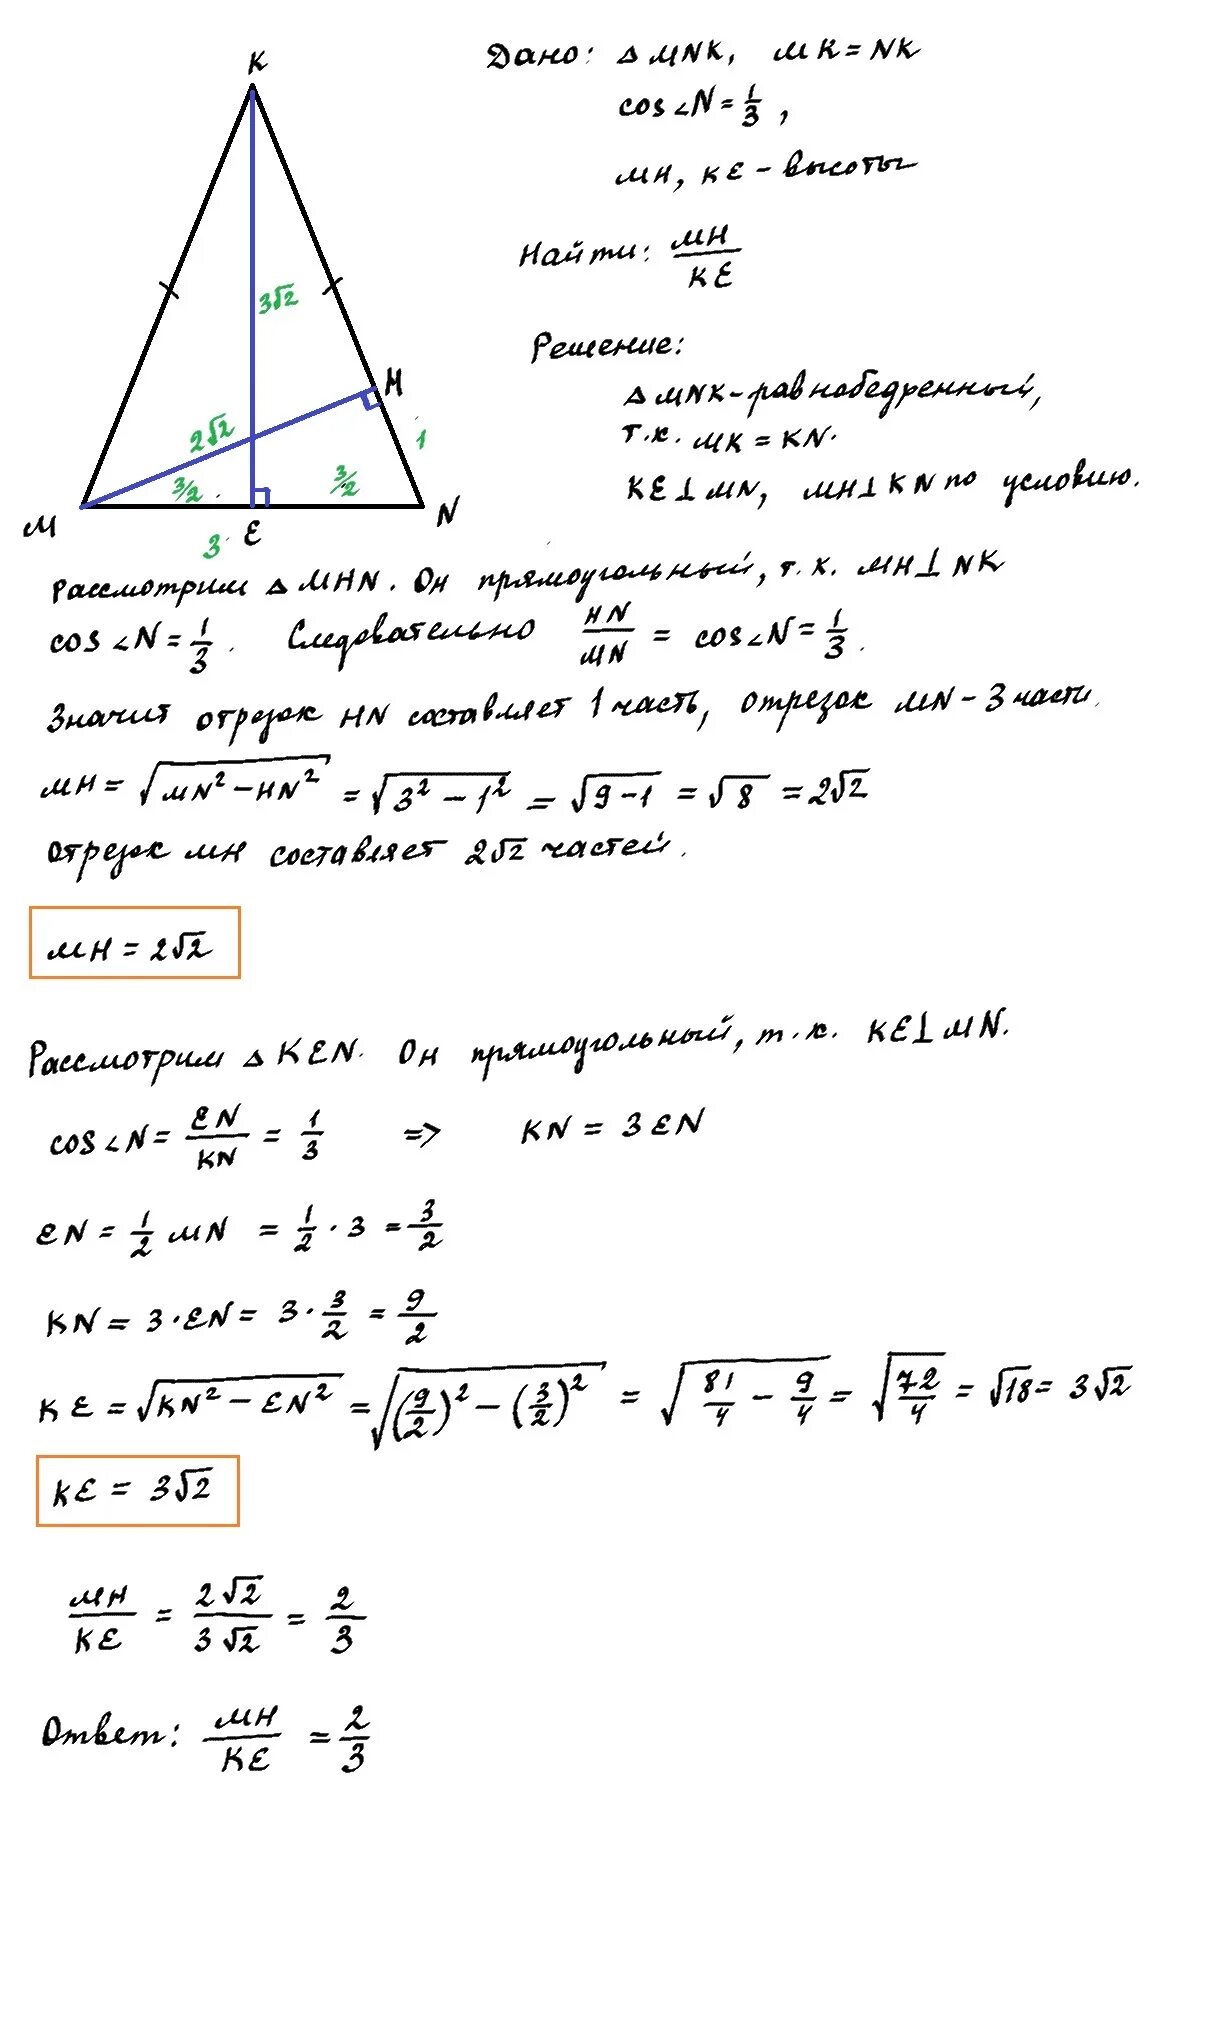 K
3√2
H
2√2
1
3/2
3/2
M
E
N
3
Дано: △MNK, MK = NK
cos∠N = 1/3,
MH, KE - высоты
Найти: MH/KE
Решение:
△MNK - равнобедренный,
т.к. MK = KN.
KE⊥MN, MH⊥KN по условию.
Рассмотрим △MHN. Он прямоугольный, т.к. MH⊥NK
cos∠N = 1/3. Следовательно HN/MN = cos∠N = 1/3.
Значит отрезок HN составляет 1 часть, отрезок MN - 3 части.
MH = √(MN² - HN²) = √(3² - 1²) = √(9-1) = √8 = 2√2
Отрезок MH составляет 2√2 частей.
MH = 2√2
Рассмотрим △KEN. Он прямоугольный, т.к. KE⊥MN.
cos∠N = EN/KN = 1/3 => KN = 3EN
EN = 1/2 MN = 1/2 · 3 = 3/2
KN = 3·EN = 3·3/2 = 9/2
KE = √(KN² - EN²) = √((9/2)² - (3/2)²) = √(81/4 - 9/4) = √(72/4) = √18 = 3√2
KE = 3√2
MH/KE = 2√2/3√2 = 2/3
Ответ: MH/KE = 2/3